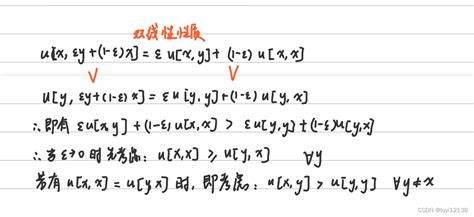 双线性性质
u[x, εy+(1-ε)x] = ε u[x,y] + (1-ε) u[x,x]
∨ ∨
u[y, εy+(1-ε)x] = ε u[y,y] + (1-ε) u[y,x]
∴ 即有 εu[x,y] + (1-ε)u[x,x] > εu[y,y] + (1-ε)u[y,x]
∴ 当ε→0时先考虑: u[x,x] ≥ u[y,x] ∀y
若有 u[x,x] = u[y,x] 时, 即考虑: u[x,y] > u[y,y] ∀y≠x
CSDN @luyi12138